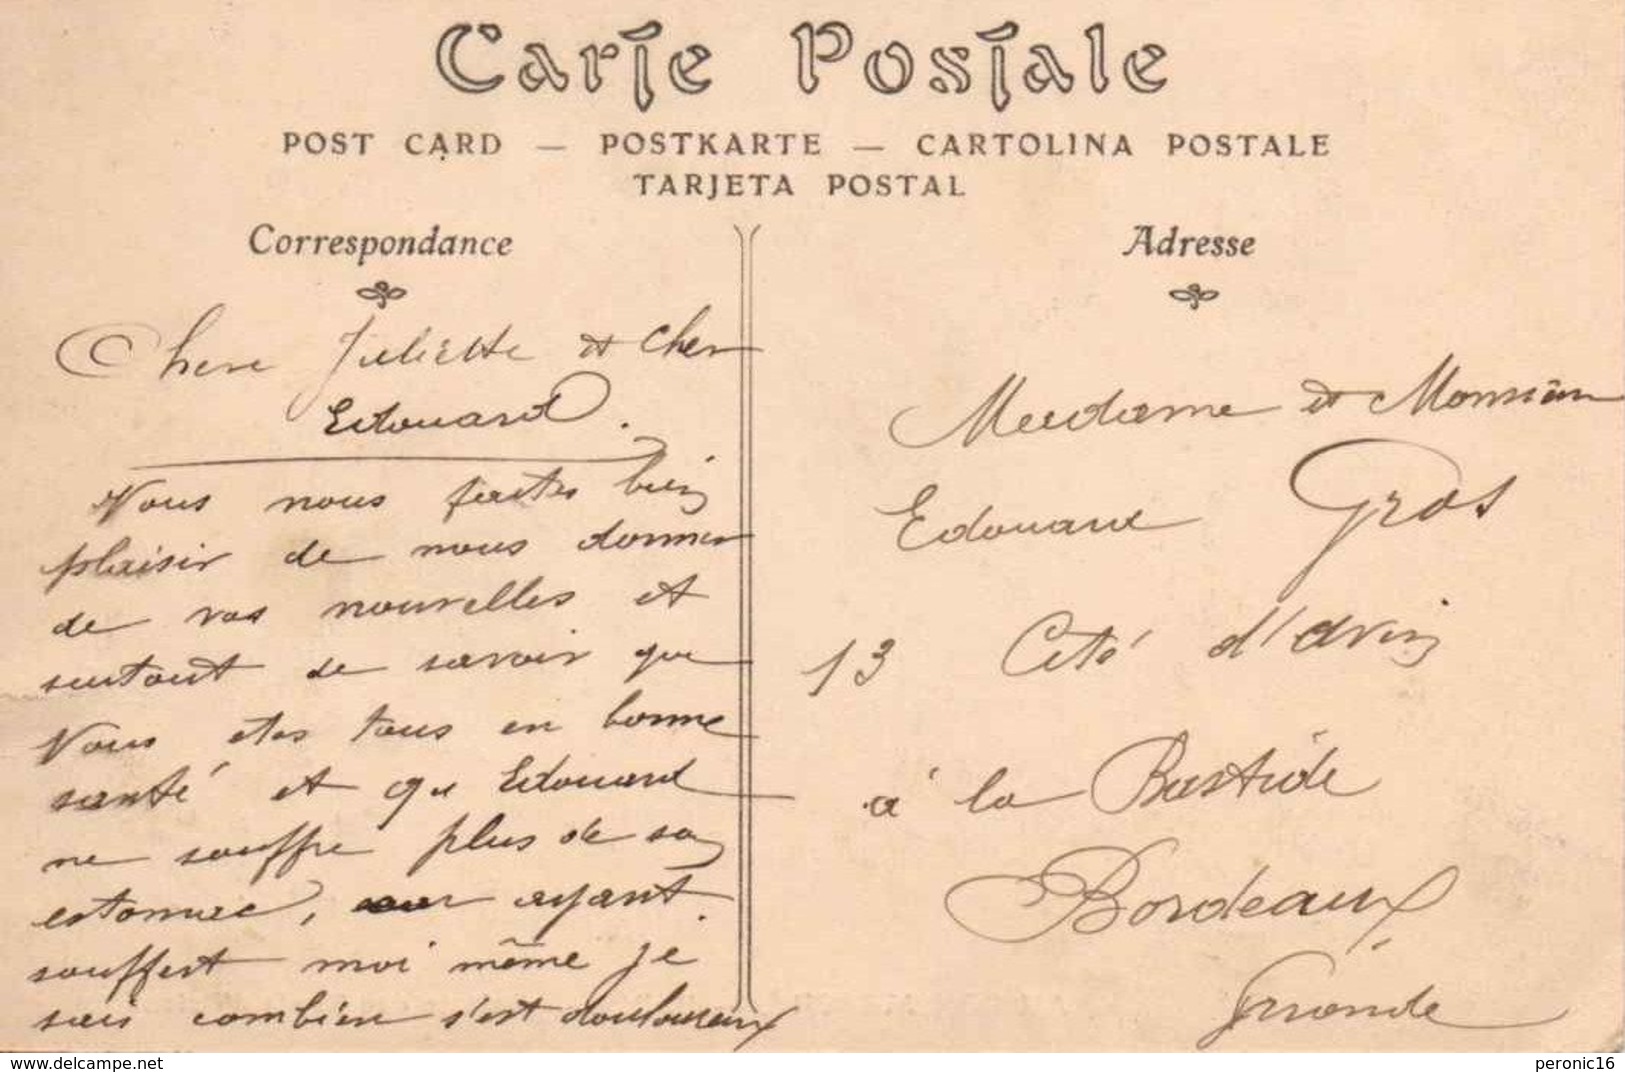 Carte Postale
POST CARD — POSTKARTE — CARTOLINA POSTALE
TARJETA POSTAL
Correspondance
Chere Juliette et Cher
Edouard.
Vous nous faites bien
plaisir de nous donner
de vos nouvelles et
surtout de savoir que
Vous etes tous en bonne
santé et que Edouard
ne souffre plus de son
estomac, ayant
souffert moi même je
sais combien s'est douloureux
Adresse
Madame et Monsieur
Edouard Gros
13 Cité d'Arvin
à la Bastide
Bordeaux
Gironde
www.delcampe.net
peronic16